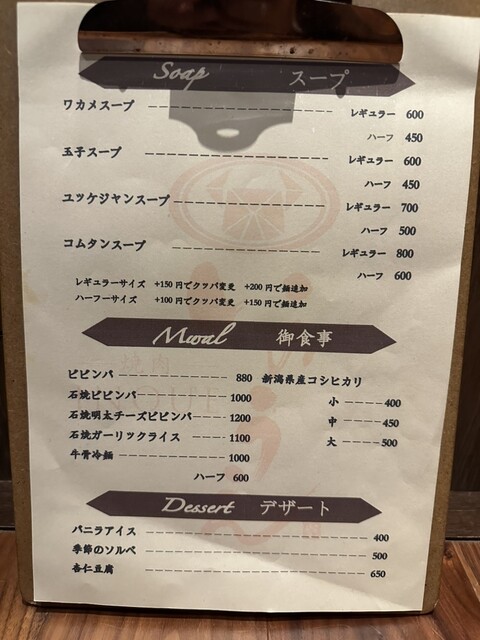 Soap スープ
ワカメスープ レギュラー 600
ハーフ 450
玉子スープ レギュラー 600
ハーフ 450
ユッケジャンスープ レギュラー 700
ハーフ 500
コムタンスープ レギュラー 800
ハーフ 600
レギュラーサイズ +150円でクッパ変更 +200円で麺追加
ハーフーサイズ +100円でクッパ変更 +150円で麺追加
Mwal 御食事
ビビンバ 880 新潟県産コシヒカリ
石焼ビビンバ 1000 小 400
石焼明太チーズビビンバ 1200 中 450
石焼ガーリックライス 1100 大 500
牛骨冷麺 1000
ハーフ 600
Dessert デザート
バニラアイス 400
季節のソルベ 500
杏仁豆腐 650